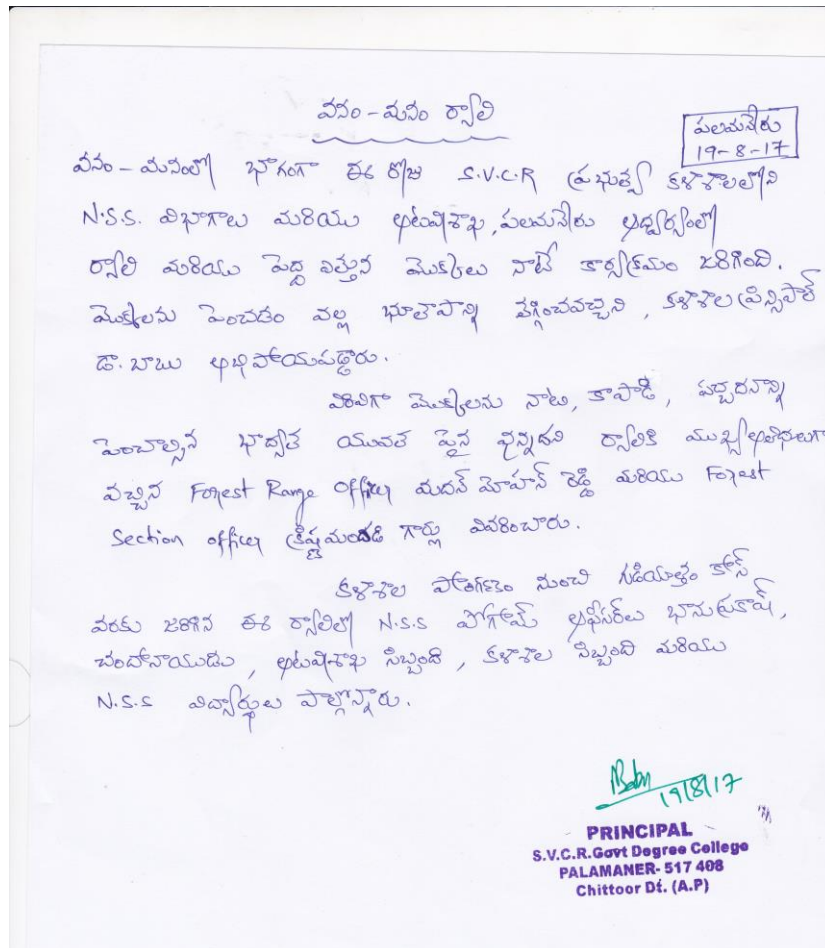 వనం - మనం ర్యాలి
పలమనేరు
19-8-17
వనం - మనంలో భాగంగా ఈ రోజు S.V.C.R ప్రభుత్వ కళాశాలలోని
N.S.S. విభాగాలు మరియు అటవీశాఖ, పలమనేరు ఆధ్వర్యంలో
ర్యాలి మరియు పెద్ద ఎత్తున మొక్కలు నాటే కార్యక్రమం జరిగింది.
మొక్కలను పెంచడం వల్ల భూతాపాన్ని తగ్గించవచ్చని, కళాశాల ప్రిన్సిపాల్
డా. బాబు అభిప్రాయపడ్డారు.
విరివిగా మొక్కలను నాటి, కాపాడి, పచ్చదనాన్ని
పెంచాల్సిన భాద్యత యువత పైన వున్నదని ర్యాలికి ముఖ్యఅతిథులుగా
వచ్చిన Forest Range Officer మదన్ మోహన్ రెడ్డి మరియు Forest
Section officer గార్లు వివరించారు.
కళాశాల ప్రాంగణం నుంచి గడియారం కోస్
వరకు జరిగిన ఈ ర్యాలిలో N.S.S ప్రోగ్రామ్ ఆఫీసర్‌లు భానుప్రకాష్,
చంద్రానాయుడు, అటవీశాఖ సిబ్బంది, కళాశాల సిబ్బంది మరియు
N.S.S విద్యార్థులు పాల్గొన్నారు.
19/8/17
PRINCIPAL
S.V.C.R.Govt Degree College
PALAMANER- 517 408
Chittoor Dt. (A.P)